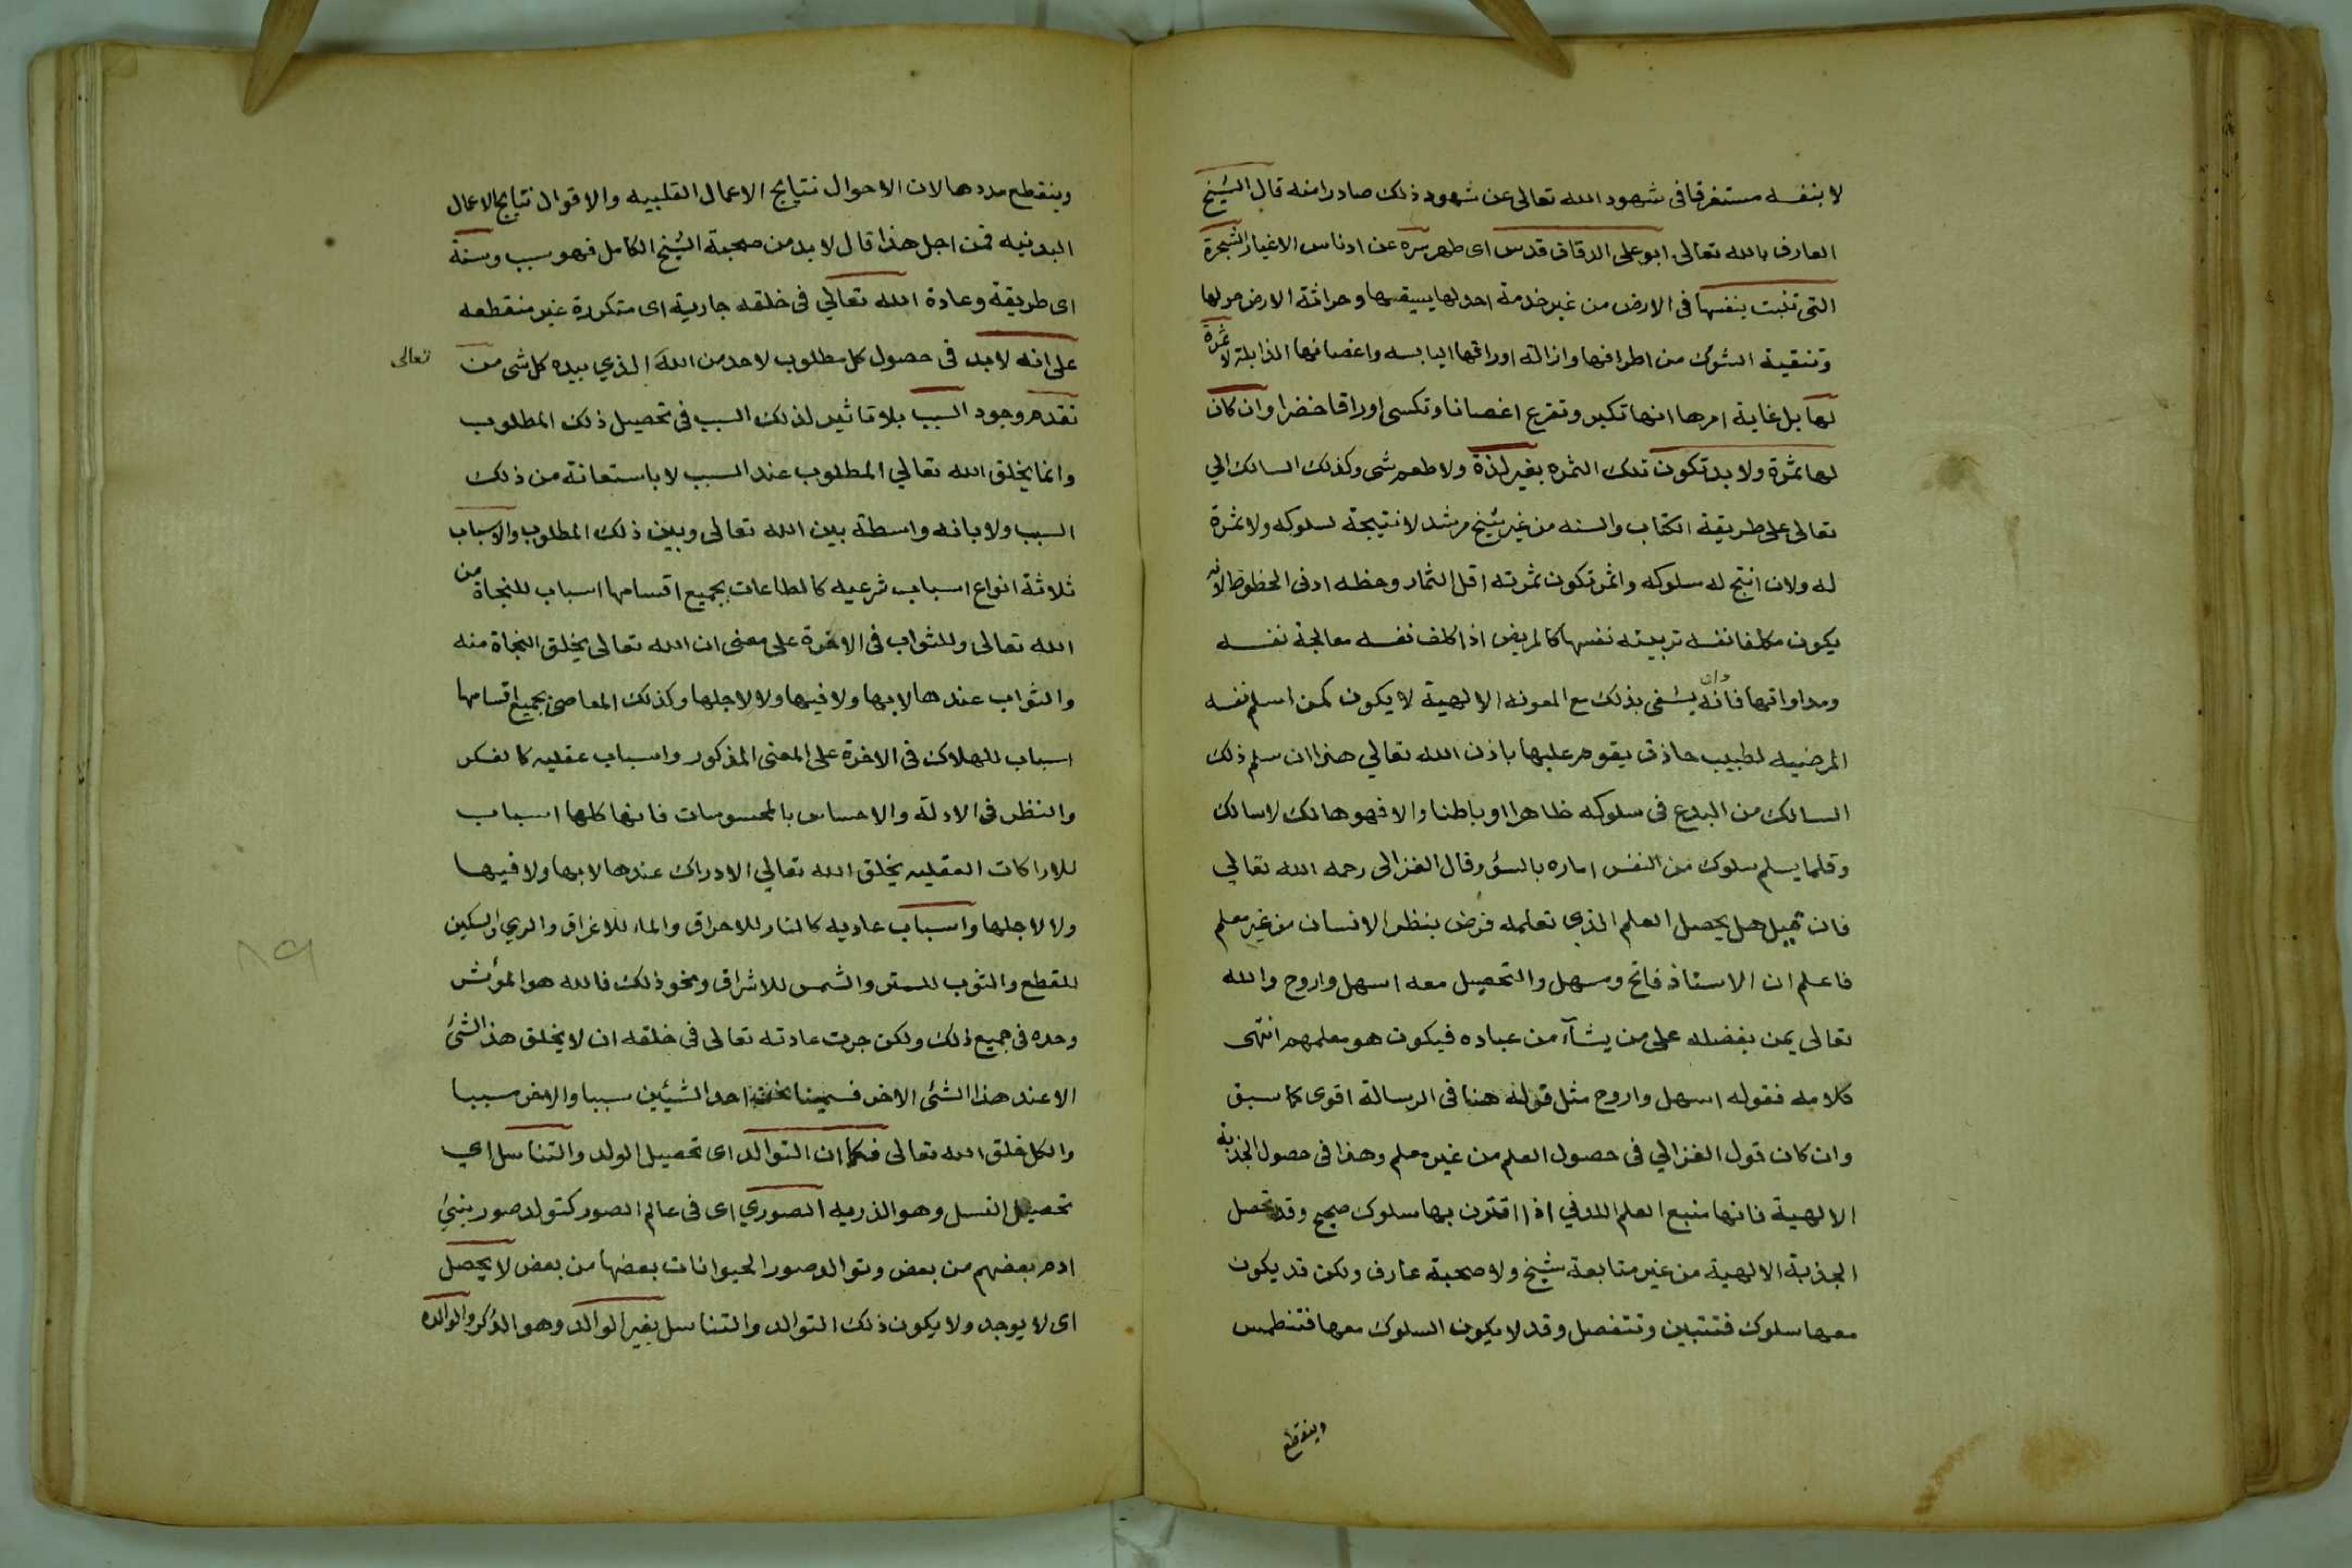 لا بنفسه مستغرقا فى شهود الله تعالى عن شهود ذلك صادرا منه قال الشيخ
العارف بالله تعالى ابو على الدقاق قدس اى طهر سره عن ادناس الاغيار الشجرة
التى تنبت بنفسها فى الارض من غير خدمة احد لها يسقيها وحراثة الارض حولها
وتنقية الشوك من اطرافها وازالة اوراقها اليابسه واغصانها الذابلة لا ثمرة
لها بل غاية امرها انها تكبر وتفرع اغصانا وتكسى اوراقا خضرا وان كان
لها ثمرة ولا بد تكون تلك الثمره بغير لذة ولا طعم شى وكذلك السالك الي
تعالى على طريقة الكتاب والسنه من غير شيخ مرشد لا نتيجة لسلوكه ولا ثمرة
له ولان انتج له سلوكه واثمر تكون ثمرته اقل الثمار وحظه ادنى الحظوظ لانه
يكون مكلفا نفسه تربيته نفسها كالمريض اذا كلف نفسه معالجة نفسه
ومداواتها فانه وان يشفى بذلك مع المعونه الالهية لا يكون كمن اسلم نفسه
المرضيه لطبيب حاذق يقوم عليها باذن الله تعالي هذا ان سلم ذلك
السالك من البدع فى سلوكه ظاهرا او باطنا والا فهو هالك لا سالك
وقلما يسلم سلوك من النفس اماره بالسؤ وقال الغزالى رحمه الله تعالي
فان قيل هل يحصل العلم الذي تعلمه فرض بنظر الانسان من غير معلم
فاعلم ان الاستاذ فاتح ومسهل والتحصيل معه اسهل واروح والله
تعالى يمن بفضله على من يشآء من عباده فيكون هو معلمهم انتهى
كلامه فقوله اسهل واروح مثل قوله هنا فى الرسالة اقوى كما سبق
وان كان قول الغزالي فى حصول العلم من غير معلم وهذا فى حصول الجذبة
الالهية فانها منبع العلم اللدني اذا اقترن بها سلوك صحيح وقد تحصل
الجذبة الالهية من غير متابعة شيخ ولا صحبة عارف ولكن قد يكون
معها سلوك فتتبين وتتفصل وقد لا يكون السلوك معها فتنطمس
وينقطع
وينقطع مددها لان الاحوال نتايج الاعمال القلبيه والاقوال نتايج الاعمال
البدنيه فمن اجل هذا قال لا بد من صحبة الشيخ الكامل فهو سبب وسنة
اى طريقة وعادة الله تعالي فى خلقه جارية اى متكررة غير منقطعه
على انه لا بد فى حصول كل مطلوب لاحد من الله الذي بيده كل شى من
تعالى
تقدم وجود السبب بلا تاثير لذلك السبب فى تحصيل ذلك المطلوب
وانما يخلق الله تعالي المطلوب عند السبب لا باستعانة من ذلك
السبب ولا بانه واسطة بين الله تعالى وبين ذلك المطلوب والاسباب
ثلاثة انواع اسباب شرعيه كالطاعات بجميع اقسامها اسباب للنجاة من
الله تعالى وللثواب فى الاخرة على معنى ان الله تعالى يخلق النجاة منه
والثواب عندها لا بها ولا فيها ولا لاجلها وكذلك المعاصى بجميع اقسامها
اسباب للهلاك فى الاخرة على المعنى المذكور واسباب عقليه كالفكر
والنظر فى الادلة والاحساس بالمحسوسات فانها كلها اسباب
للاراكات العقليه يخلق الله تعالي الادراك عندها لا بها ولا فيها
ولا لاجلها واسباب عاديه كالنار للاحراق والماء للاغراق والري والسكين
للقطع والثوب للستر والشمس للاشراق ونحو ذلك فالله هو المؤثر
وحده فى جميع ذلك ولكن جرت عادته تعالى فى خلقه ان لا يخلق هذا الشئ
الا عند هذا الشئ الاخر فسمينا نحن احد الشيئين سببا والاخر مسببا
والكل خلق الله تعالى فكما ان التوالد اى تحصيل الولد والتناسل اي
تحصيل النسل وهو الذريه الصوري اى فى عالم الصور كتولد صور بني
ادم بعضهم من بعض وتوالد صور الحيوانات بعضها من بعض لا يحصل
اى لا يوجد ولا يكون ذلك التوالد والتناسل بغير الوالد وهو الذكر والوالده
٨٩